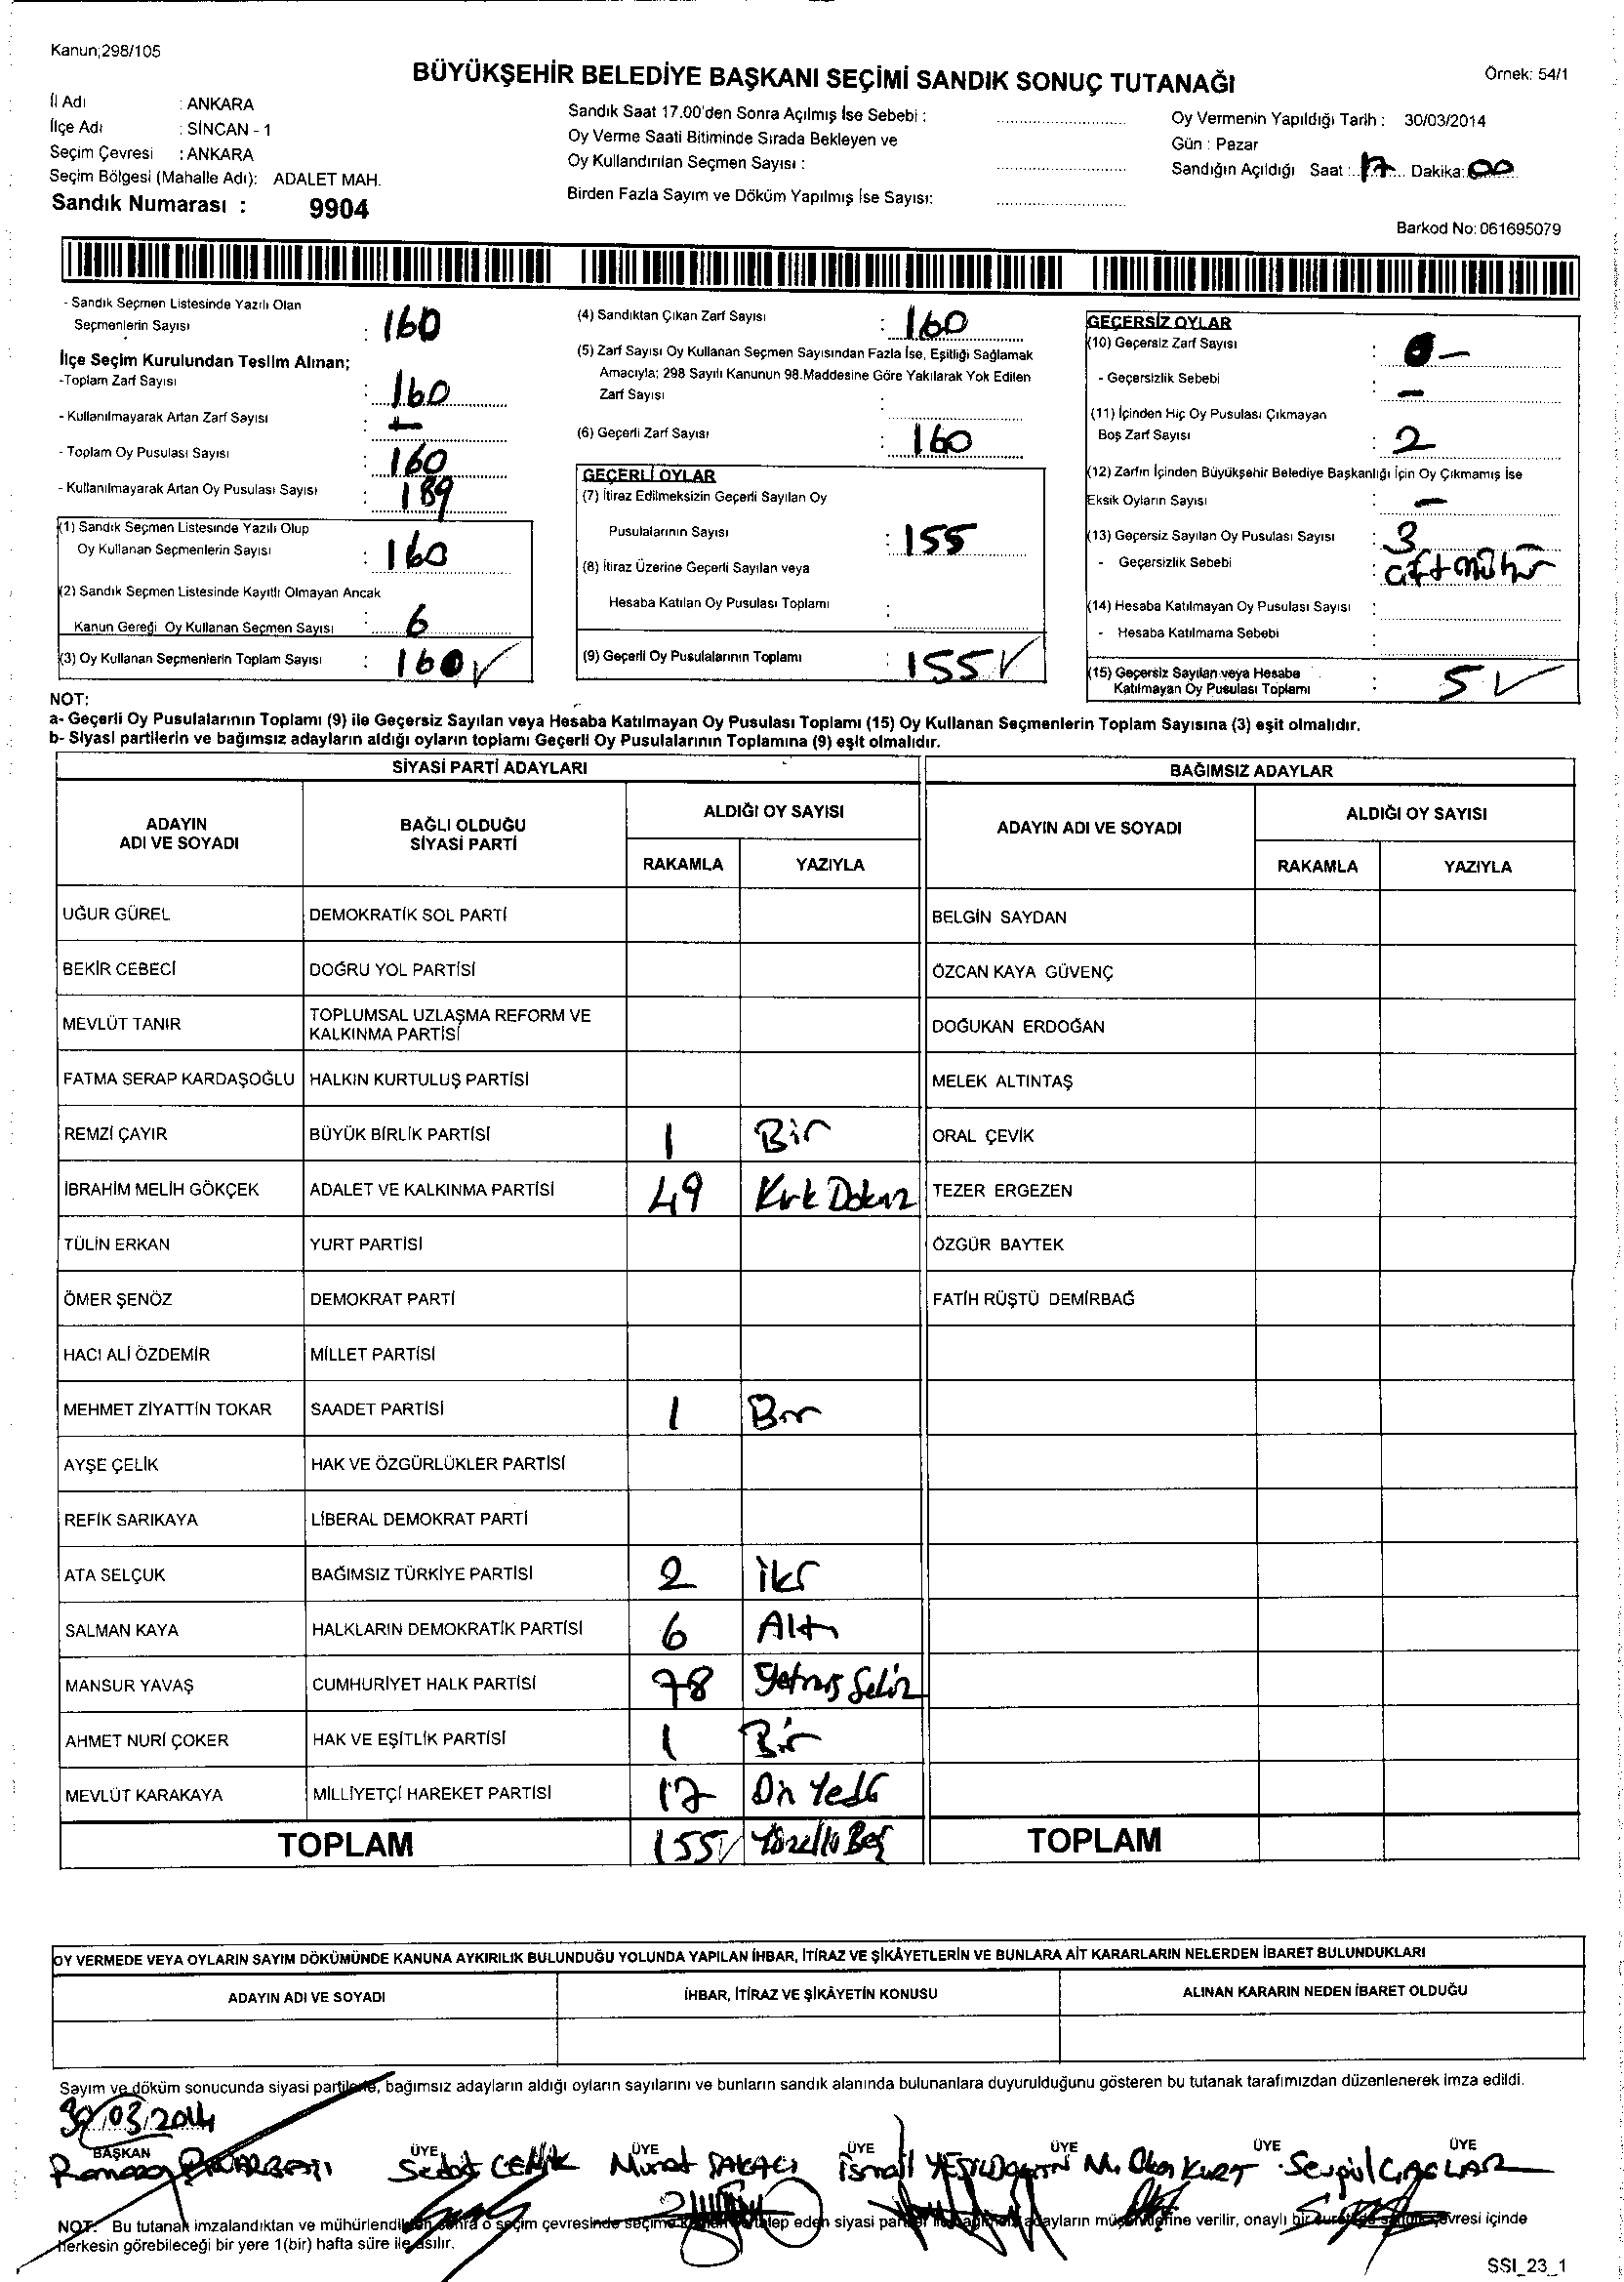 Kanun;298/105
BÜYÜKŞEHİR BELEDİYE BAŞKANI SEÇİMİ SANDIK SONUÇ TUTANAĞI
Örnek: 54/1
İl Adı : ANKARA
İlçe Adı : SİNCAN - 1
Seçim Çevresi : ANKARA
Seçim Bölgesi (Mahalle Adı): ADALET MAH.
Sandık Numarası : 9904
Sandık Saat 17.00'den Sonra Açılmış İse Sebebi :
Oy Verme Saati Bitiminde Sırada Bekleyen ve
Oy Kullandırılan Seçmen Sayısı :
Birden Fazla Sayım ve Döküm Yapılmış İse Sayısı:
Oy Vermenin Yapıldığı Tarih : 30/03/2014
Gün : Pazar
Sandığın Açıldığı Saat : 17 Dakika: 00
Barkod No: 061695079
- Sandık Seçmen Listesinde Yazılı Olan
Seçmenlerin Sayısı : 160
İlçe Seçim Kurulundan Teslim Alınan;
-Toplam Zarf Sayısı : 160
- Kullanılmayarak Artan Zarf Sayısı : -
- Toplam Oy Pusulası Sayısı : 160
- Kullanılmayarak Artan Oy Pusulası Sayısı : 189
(1) Sandık Seçmen Listesinde Yazılı Olup
Oy Kullanan Seçmenlerin Sayısı : 160
(2) Sandık Seçmen Listesinde Kayıtlı Olmayan Ancak
Kanun Gereği Oy Kullanan Seçmen Sayısı : 6
(3) Oy Kullanan Seçmenlerin Toplam Sayısı : 160
(4) Sandıktan Çıkan Zarf Sayısı : 160
(5) Zarf Sayısı Oy Kullanan Seçmen Sayısından Fazla İse, Eşitliği Sağlamak
Amacıyla; 298 Sayılı Kanunun 98.Maddesine Göre Yakılarak Yok Edilen
Zarf Sayısı :
(6) Geçerli Zarf Sayısı : 160
GEÇERLİ OYLAR
(7) İtiraz Edilmeksizin Geçerli Sayılan Oy
Pusulalarının Sayısı : 155
(8) İtiraz Üzerine Geçerli Sayılan veya
Hesaba Katılan Oy Pusulası Toplamı :
(9) Geçerli Oy Pusulalarının Toplamı : 155
GEÇERSİZ OYLAR
(10) Geçersiz Zarf Sayısı : -
- Geçersizlik Sebebi : -
(11) İçinden Hiç Oy Pusulası Çıkmayan
Boş Zarf Sayısı : 2
(12) Zarfın İçinden Büyükşehir Belediye Başkanlığı İçin Oy Çıkmamış İse
Eksik Oyların Sayısı -
(13) Geçersiz Sayılan Oy Pusulası Sayısı : 3
- Geçersizlik Sebebi : çift mühür
(14) Hesaba Katılmayan Oy Pusulası Sayısı :
- Hesaba Katılmama Sebebi :
(15) Geçersiz Sayılan veya Hesaba
Katılmayan Oy Pusulası Toplamı : 5
NOT:
a- Geçerli Oy Pusulalarının Toplamı (9) ile Geçersiz Sayılan veya Hesaba Katılmayan Oy Pusulası Toplamı (15) Oy Kullanan Seçmenlerin Toplam Sayısına (3) eşit olmalıdır.
b- Siyasi partilerin ve bağımsız adayların aldığı oyların toplamı Geçerli Oy Pusulalarının Toplamına (9) eşit olmalıdır.
SİYASİ PARTİ ADAYLARI BAĞIMSIZ ADAYLAR
ADAYIN ADI VE SOYADI BAĞLI OLDUĞU SİYASİ PARTİ ALDIĞI OY SAYISI ADAYIN ADI VE SOYADI ALDIĞI OY SAYISI
RAKAMLA YAZIYLA RAKAMLA YAZIYLA
UĞUR GÜREL DEMOKRATİK SOL PARTİ BELGİN SAYDAN
BEKİR CEBECİ DOĞRU YOL PARTİSİ ÖZCAN KAYA GÜVENÇ
MEVLÜT TANIR TOPLUMSAL UZLAŞMA REFORM VE KALKINMA PARTİSİ DOĞUKAN ERDOĞAN
FATMA SERAP KARDAŞOĞLU HALKIN KURTULUŞ PARTİSİ MELEK ALTINTAŞ
REMZİ ÇAYIR BÜYÜK BİRLİK PARTİSİ 1 Bir ORAL ÇEVİK
İBRAHİM MELİH GÖKÇEK ADALET VE KALKINMA PARTİSİ 49 Kırk Dokuz TEZER ERGEZEN
TÜLİN ERKAN YURT PARTİSİ ÖZGÜR BAYTEK
ÖMER ŞENÖZ DEMOKRAT PARTİ FATİH RÜŞTÜ DEMİRBAĞ
HACI ALİ ÖZDEMİR MİLLET PARTİSİ
MEHMET ZİYATTİN TOKAR SAADET PARTİSİ 1 Bir
AYŞE ÇELİK HAK VE ÖZGÜRLÜKLER PARTİSİ
REFİK SARIKAYA LİBERAL DEMOKRAT PARTİ
ATA SELÇUK BAĞIMSIZ TÜRKİYE PARTİSİ 2 iki
SALMAN KAYA HALKLARIN DEMOKRATİK PARTİSİ 6 Altı
MANSUR YAVAŞ CUMHURİYET HALK PARTİSİ 78 Yetmiş Sekiz
AHMET NURİ ÇOKER HAK VE EŞİTLİK PARTİSİ 1 Bir
MEVLÜT KARAKAYA MİLLİYETÇİ HAREKET PARTİSİ 17 On Yedi
TOPLAM 155 Yüzelli Beş TOPLAM
OY VERMEDE VEYA OYLARIN SAYIM DÖKÜMÜNDE KANUNA AYKIRILIK BULUNDUĞU YOLUNDA YAPILAN İHBAR, İTİRAZ VE ŞİKÂYETLERİN VE BUNLARA AİT KARARLARIN NELERDEN İBARET BULUNDUKLARI
ADAYIN ADI VE SOYADI İHBAR, İTİRAZ VE ŞİKÂYETİN KONUSU ALINAN KARARIN NEDEN İBARET OLDUĞU
Sayım ve döküm sonucunda siyasi partilerle, bağımsız adayların aldığı oyların sayılarını ve bunların sandık alanında bulunanlara duyurulduğunu gösteren bu tutanak tarafımızdan düzenlenerek imza edildi.
30/03/2014
BAŞKAN ÜYE ÜYE ÜYE ÜYE ÜYE ÜYE
Ramazan Sedat ÇELİK Murat İsmail M. Okan KURT Serpil ÇAĞLAR
NOT: Bu tutanak imzalandıktan ve mühürlendikten sonra o seçim çevresinde seçime katılan ve talep eden siyasi partiler ile bağımsız adayların müşahitlerine verilir, onaylı bir sureti de seçim çevresi içinde
herkesin görebileceği bir yere 1(bir) hafta süre ile asılır.
SSI_23_1